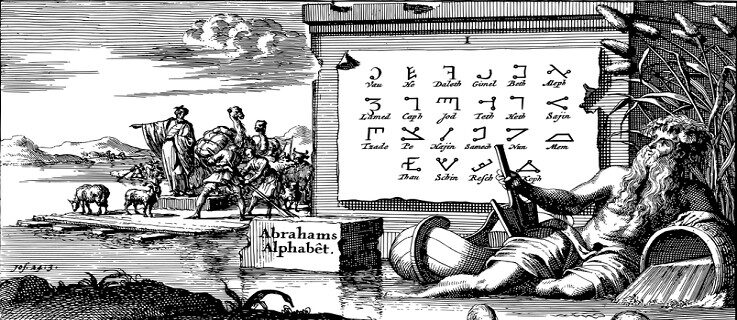 I
Vau He Daleth Gimel Beth Aleph
Lamed Caph Jod Teth Heth Sajin
Tzade Pe Hajin Samech Nun Mem
Thau Schin Resch Koph
Abrahams
Alphabêt.
Jos. 24.3.